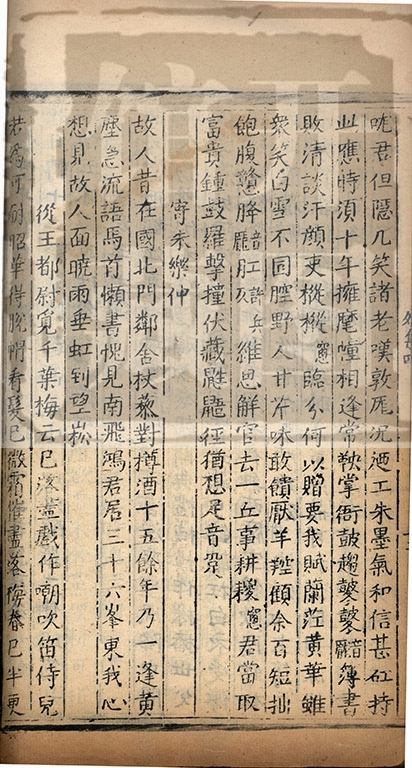 君但隱几笑諸老嘆敦厖況迺工朱墨氣和信甚矼持
此應時須十年擁麾幢相逢常鞅掌衙鼓趨簿書
敗清談汗顏吏樅樅臨分何以贈要我賦蘭茳黃華雖
衆笑白雪不同腔野人甘芹味敢饋厭羊羫顧余百短拙
飽腹肛維思解官去一丘事耕君當取
富貴鍾鼓羅擊撞伏藏鼪鼯徑猶想足音跫
寄朱樂仲
故人昔在國北門鄰舍杖藜對樽酒十五餘年乃一逢黄
塵急流語馬首懶書愧見南飛鴻君居三十六峯東我心
想見故人面曉雨垂虹到望崧
從王都尉覓千葉梅云巳落盡戲作嘲吹笛侍兒
若爲可耐昭華得脫帽看髮巳微霜催盡落梅春巳半更